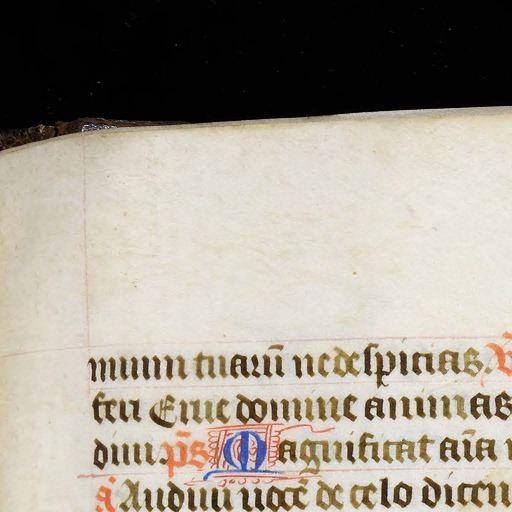 manuum tuarū ne despicias. V̄
feri Erue domine animas
dnn. p̄s Magnificat aīa
a Audiui uocē de celo dicen